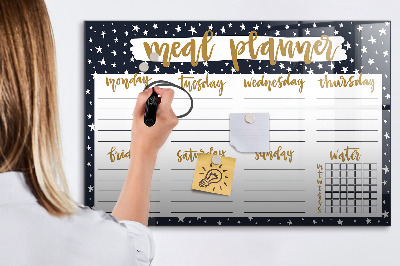 meal planner
monday tuesday wednesday thursday
friday saturday sunday water
m t w t f s s